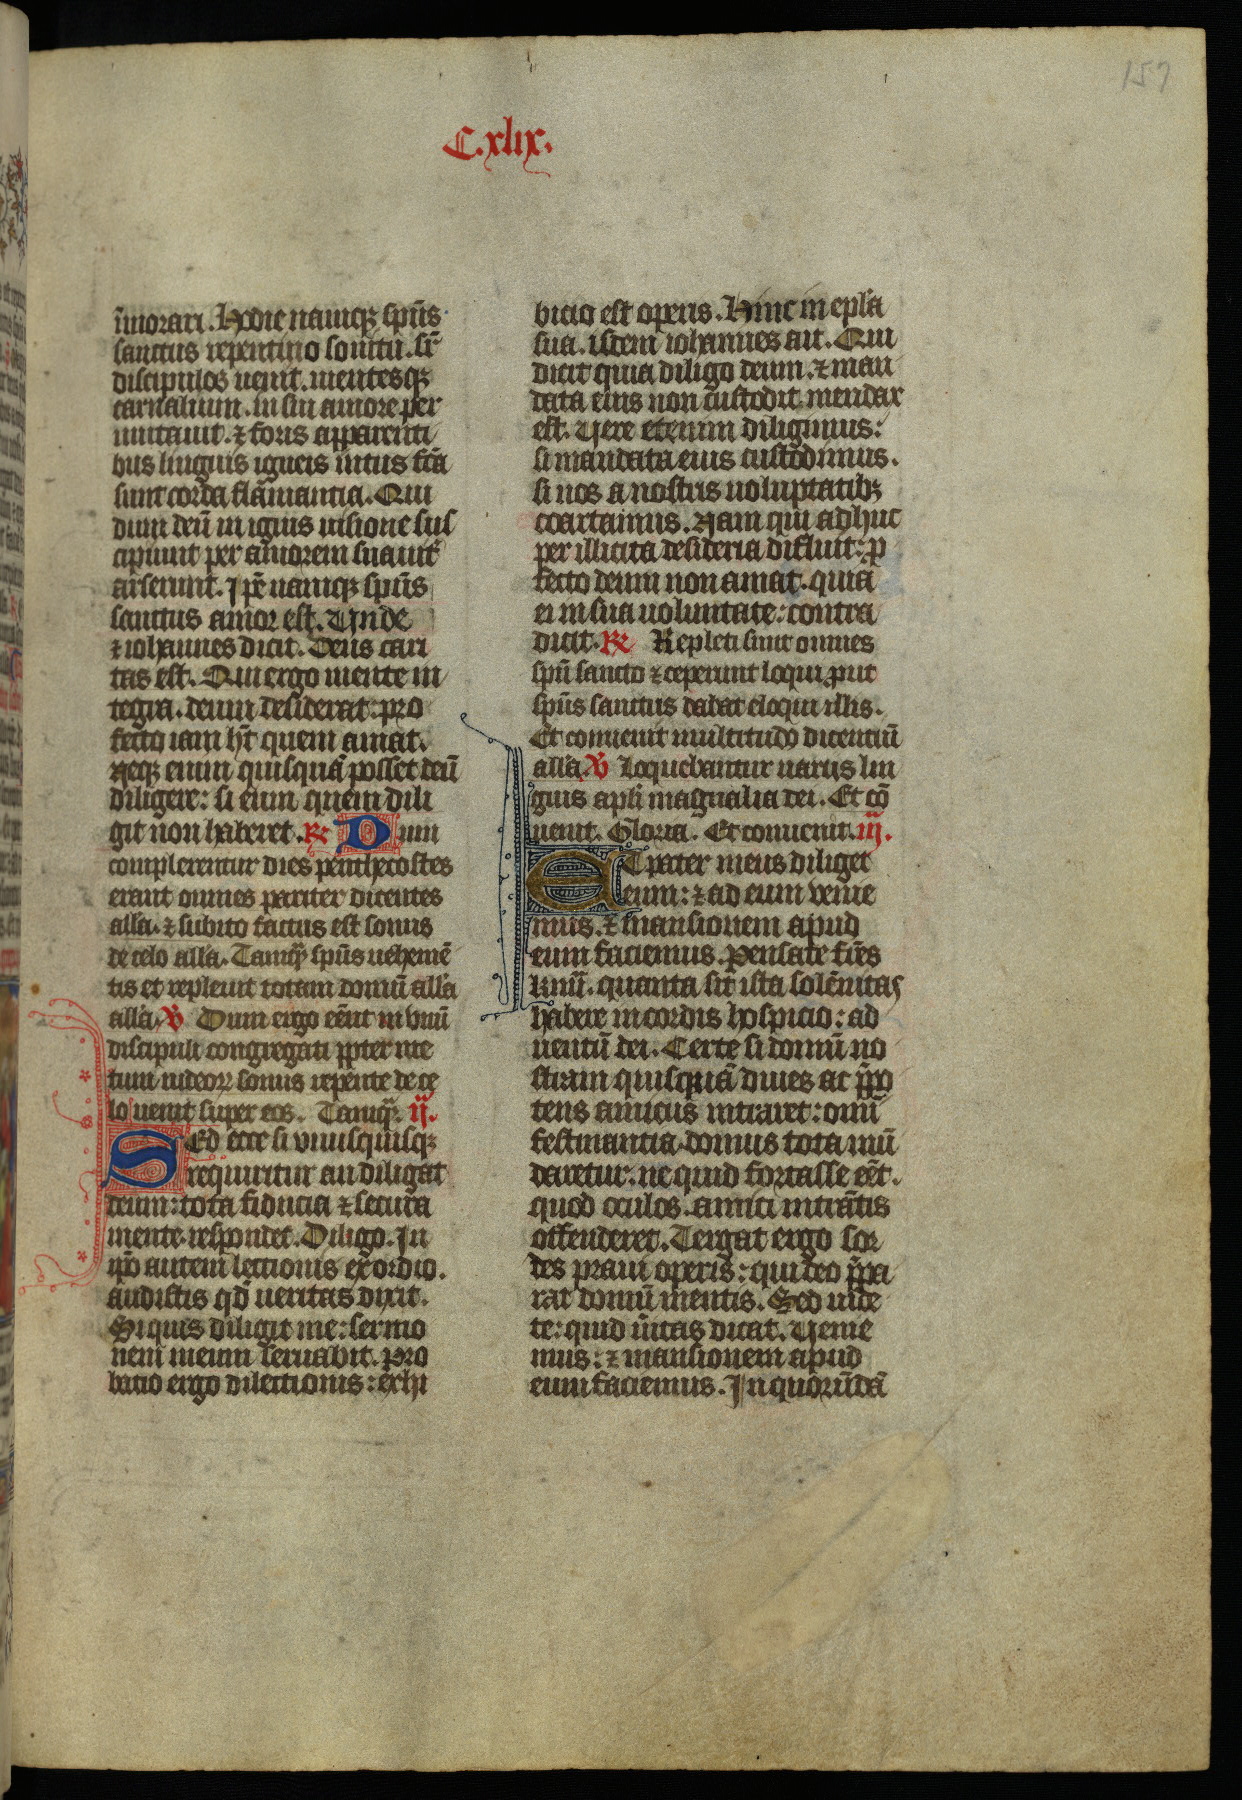 157
C.xlix.
īmorari. Hodie namq; spūs
sanctus repentino sonitu. sr̄
discipulos uenit. mentesq;
carnalium. in sui amore per
mutauit. ⁊ foris apparenti
bus linguis igneis intus fc̄a
sunt corda flāmantia. Qui
dum deū in ignis uisione sus
cipiunt per amorem suauit̄
arserunt. Ip̄e namq; spūs
sanctus amor est. Unde
⁊ iohannes dicit. Deus cari
tas est. Qui ergo mente in
tegra. deum desiderat: pro
fecto iam hт̄ quem amat.
Neq; enim quisquā posset deū
diligere: si eum quem dili
git non haberet. R̷ Dum
complerentur dies penthecostes
erant omnes pariter dicentes
alla. ⁊ subito factus est sonus
de celo alla. Tamq̄ spūs uehemē
tis et repleuit totam domū alla
alla. V̷ Dum ergo eēnt in vnū
discipuli congregati ꝓpter me
tum iudeoꝝ sonus repente de ce
lo uenit super eos. Tamq̄. ij.
SEd ecce si vnusquisq;
requiritur an diligat
deum: tota fiducia ⁊ secura
mente respondet. Diligo. In
ip̄o autem lectionis exordio.
audistis qd̄ ueritas dixit.
Si quis diligit me: sermo
nem meum seruabit. Pro
batio ergo dilectionis: exhi
bicio est operis. Hinc in epl̄a
sua. idem iohannes ait. Qui
dicit quia diligo deum. ⁊ man
data eius non custodit mendax
est. Uere etenim diligimus:
si mandata eius custodimus.
si nos a nostris uoluptatib;
coartamus. Nam qui adhuc
per illicita desideria difluit: ꝓ
fecto deum non amat. quia
ei in sua uoluntate: contra
dicit. R̷ Repleti sunt omnes
spū sancto ⁊ ceperunt loqui ꝓut
spūs sanctus dabat eloqui illis.
Et conuenit multitudo dicentiū
alla. V̷ Loquebantur uarijs lin
guis apl̄i magnalia dei. Et cō
uenit. Gloria. Et conuenit. iij.
ET pater meus diliget
eum: ⁊ ad eum venie
mus. ⁊ mansionem apud
eum faciemus. Pensate fr̄es
kmī. quanta sit ista solēnitas
habere in cordis hospicio: ad
uentū dei. Certe si domū no
stram quisquā diues ac p̄po
tens amicus intraret: omī
festinantia domus tota mū
daretur. ne quid fortasse eēt.
quod oculos amici intrātis
offenderet. Tergat ergo sor
des praui operis: qui deo p̄pa
rat domū mentis. Sed uide
te: quid ūitas dicat. Uenie
mus: ⁊ mansionem apud
eum faciemus. In quorūdā